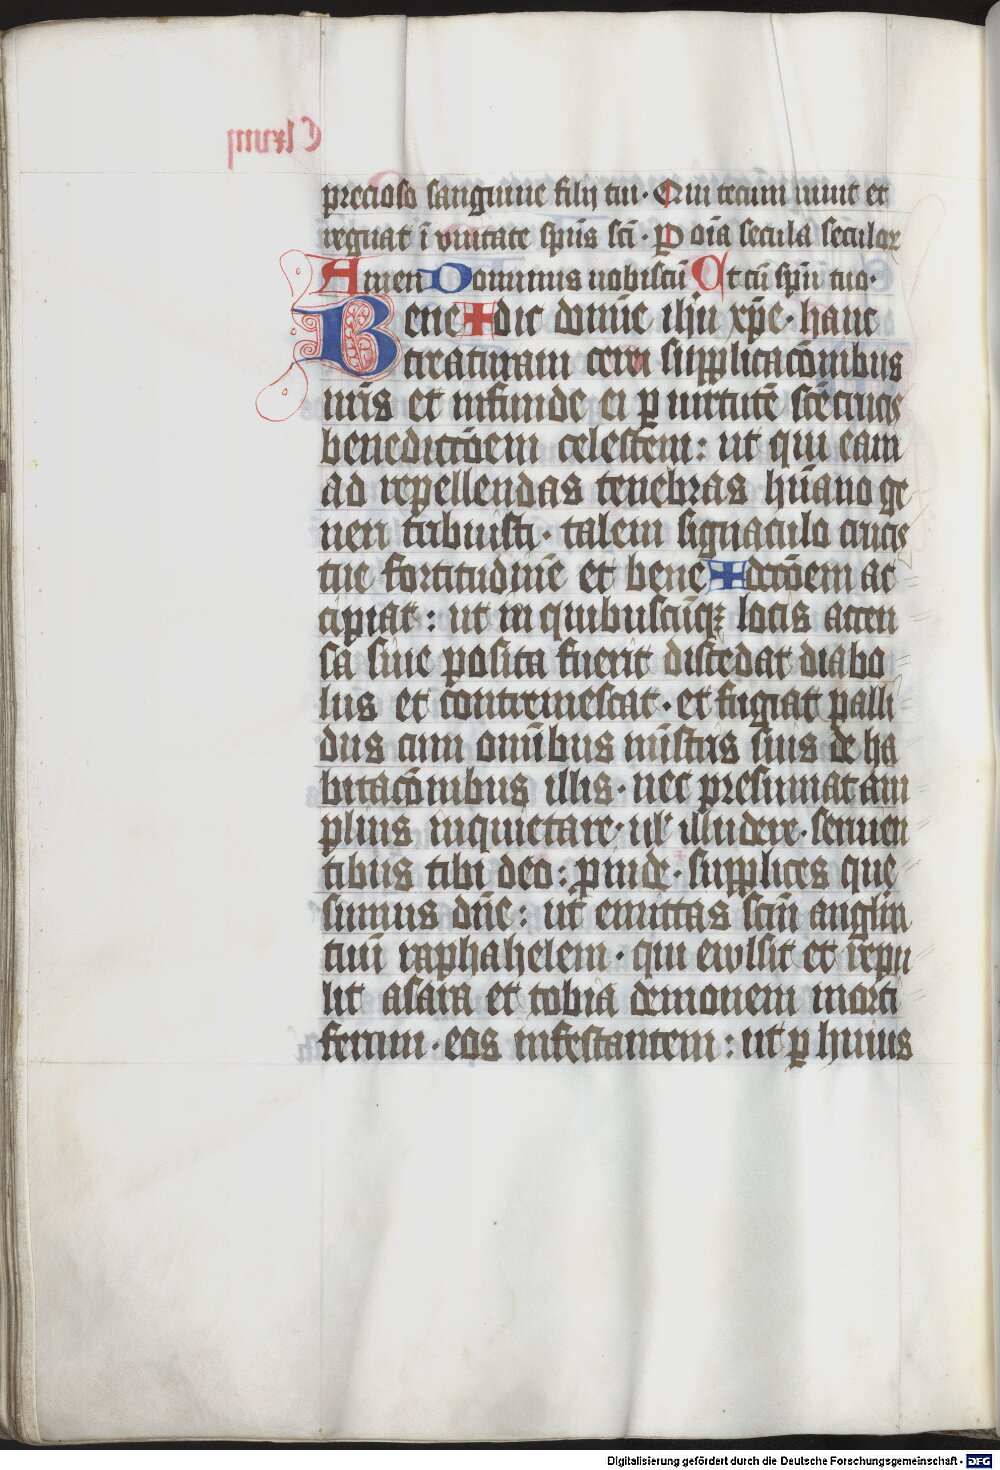 precioso sanguine filij tui · Qui tecum uiuit et
regnat ī vnitate spūs scī · P oīa secula seculoꝝ
Amen Dominus uobiscū Et cū spū tuo ·
Bene✚dic domīe ihū xp̄e · hanc
creaturam cerei supplicacōnibus
nr̄is et infunde ei ꝑ uirtutē scē crucis
benedictōem celestem : ut qui eam
ad repellendas tenebras hūano ge
neri tribuisti · talem signaculo crucis
tue fortitudinē et bene✚dctōem ac
cipiat : ut in quibuscūqꝫ locis accen
sa siue posita fuerit discedat diabo
lus et contremescat · et fugiat palli
dus cum omībus mīstris suis de ha
bitacōnibus illis · nec presumat am
plius inquietare · ul' illudere · seruien
tibus tibi deo : ꝓinde · supplices que
sumus dn̄e : ut emittas scm̄ anglm̄
tuū raphahelem · qui euulsit et repu
lit asara et tobia demonem morti
ferum · eos infestantem : ut ꝑ huius
Digitalisierung gefördert durch die Deutsche Forschungsgemeinschaft - DFG